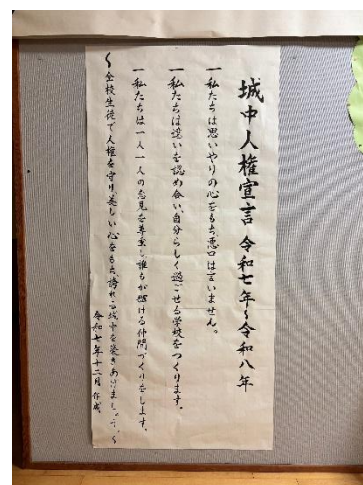 城中人権宣言 令和七年~令和八年
一私たちは思いやりの心をもち、悪口は言いません。
一私たちは違いを認め合い、自分らしく過ごせる学校をつくります。
一私たちは一人一人の意見を尊重し、誰もが輝ける仲間づくりをします。
~全校生徒で人権を守り、美しい心をもち、誇れる城中を築きあげましょう。~
令和七年十二月 作成